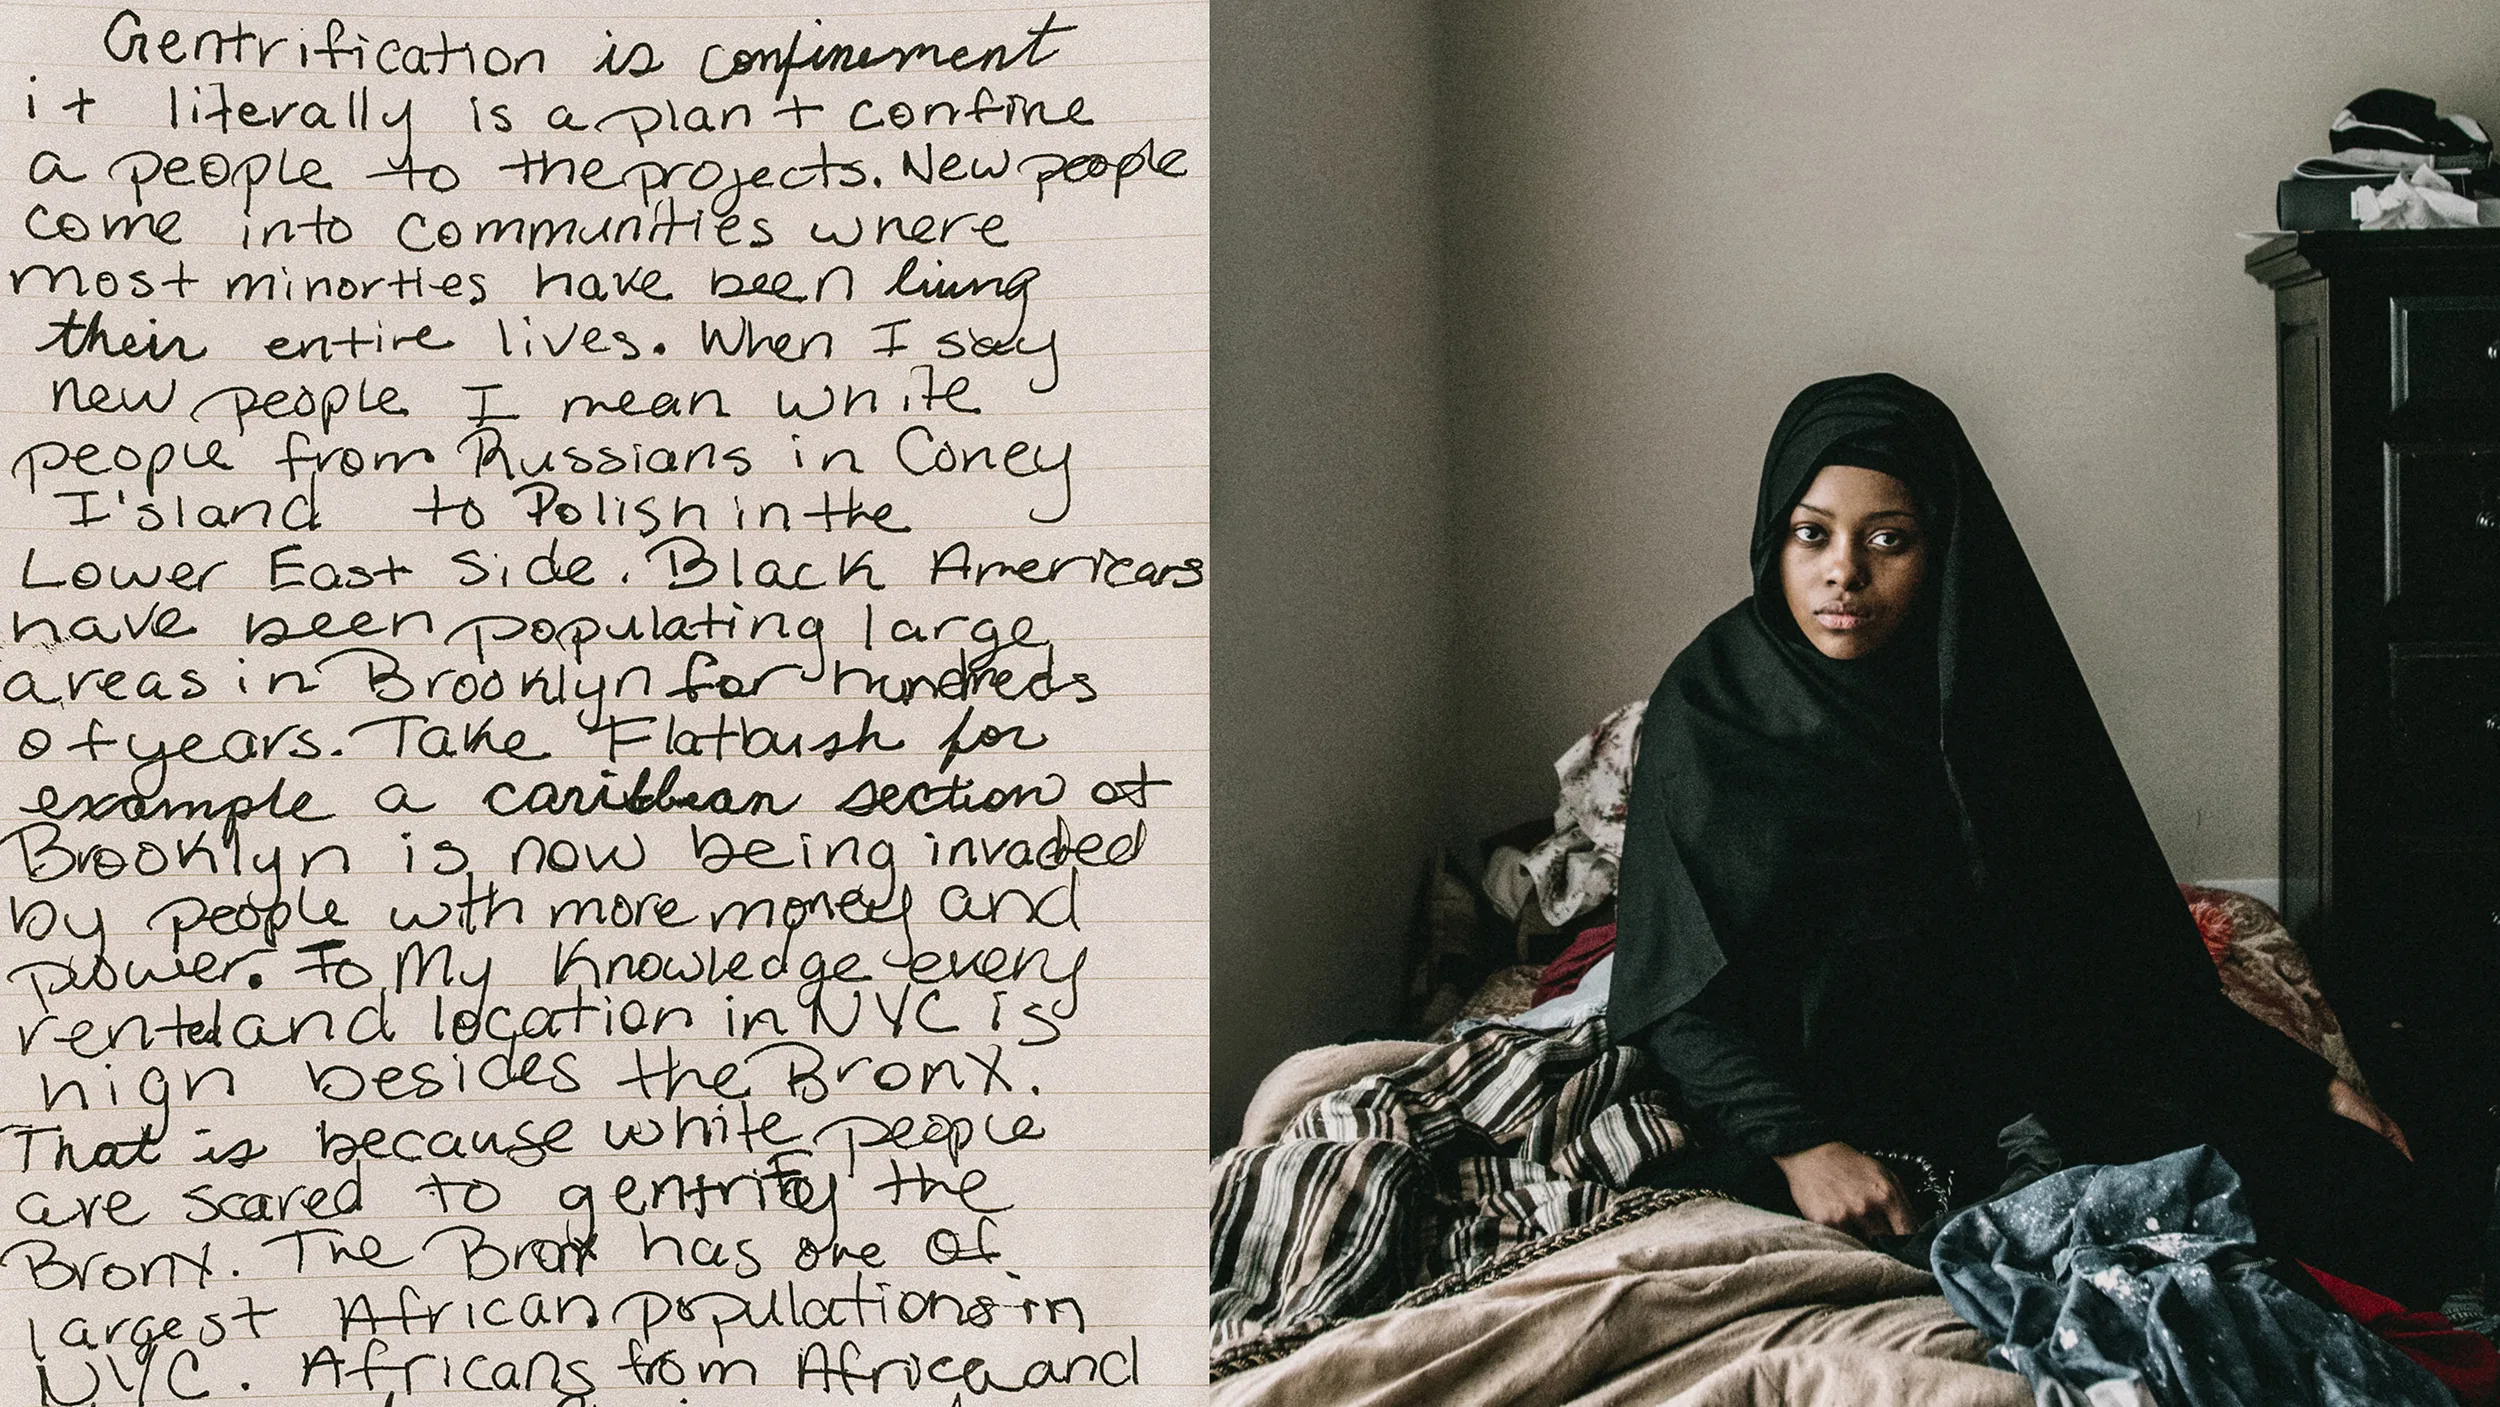 Gentrification is confinement
it literally is a plan + confine
a people to the projects. New people
come into communities where
most minorties have been living
their entire lives. When I say
new people I mean white
people from Russians in Coney
I'sland to Polish in the
Lower East Side. Black Americans
have been populating large
areas in Brooklyn for hundreds
of years. Take Flatbush for
example a caribbean section of
Brooklyn is now being invaded
by people with more money and
power. To My Knowledge every
rented and location in NYC is
high besides the Bronx.
That is because white people
are scared to gentrify the
Bronx. The Bronx has one of
largest African populations in
NYC. Africans from Africa and